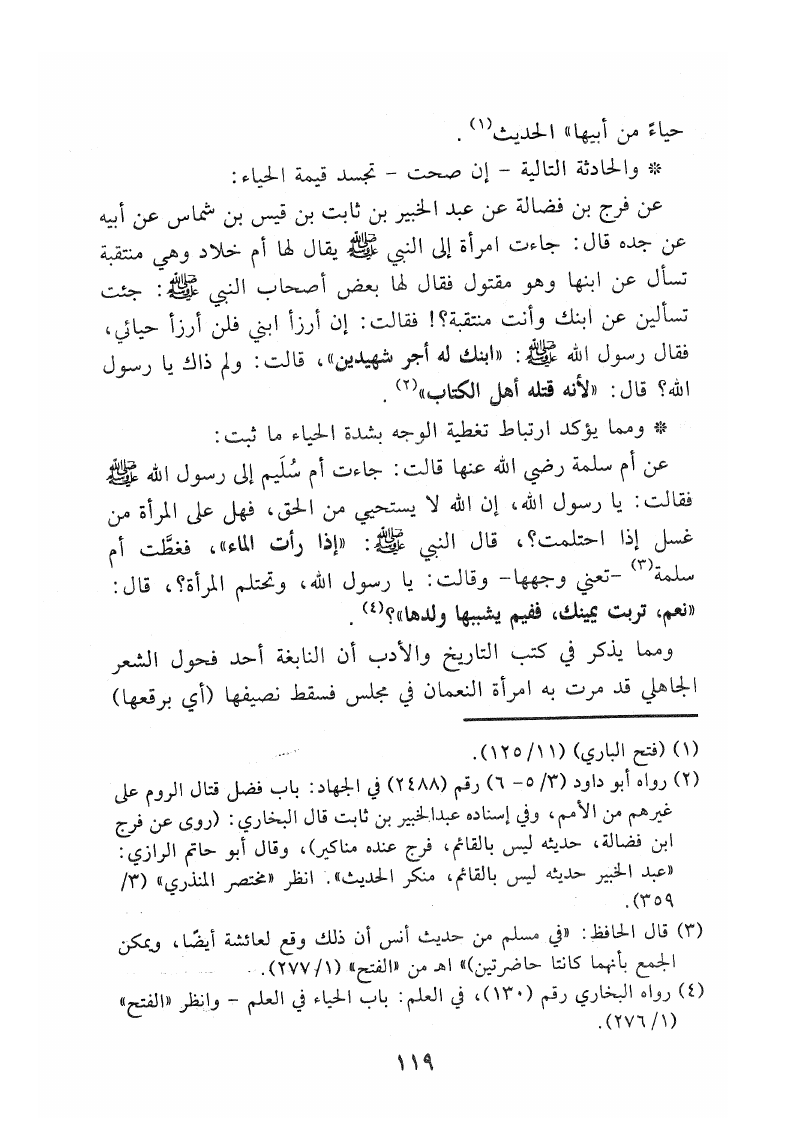 حياءً من أبيها» الحديث(١) .
* والحادثة التالية - إن صحت - تجسد قيمة الحياء :
عن فرج بن فضالة عن عبد الخبير بن ثابت بن قيس بن شماس عن أبيه
عن جده قال : جاءت امرأة إلى النبي ﷺ يقال لها أم خلاد وهي منتقبة
تسأل عن ابنها وهو مقتول فقال لها بعض أصحاب النبي ﷺ : جئت
تسألين عن ابنك وأنت منتقبة؟! فقالت : إن أرزأ ابني فلن أرزأ حيائي،
فقال رسول الله ﷺ : «ابنك له أجر شهيدين»، قالت : ولم ذاك يا رسول
الله؟ قال : «لأنه قتله أهل الكتاب»(٢) .
* ومما يؤكد ارتباط تغطية الوجه بشدة الحياء ما ثبت :
عن أم سلمة رضي الله عنها قالت : جاءت أم سُلَيم إلى رسول الله ﷺ
فقالت : يا رسول الله، إن الله لا يستحيي من الحق، فهل على المرأة من
غسل إذا احتلمت؟، قال النبي ﷺ : «إذا رأت الماء»، فغطَّت أم
سلمة(٣) -تعني وجهها- وقالت : يا رسول الله، وتحتلم المرأة؟، قال :
«نعم، تربت يمينك، ففيم يشبهها ولدها»؟(٤) .
ومما يذكر في كتب التاريخ والأدب أن النابغة أحد فحول الشعر
الجاهلي قد مرت به امرأة النعمان في مجلس فسقط نصيفها (أي برقعها)
(١) (فتح الباري) (١١/ ١٢٥).
(٢) رواه أبو داود (٣/ ٥- ٦) رقم (٢٤٨٨) في الجهاد: باب فضل قتال الروم على
غيرهم من الأمم، وفي إسناده عبدالخبير بن ثابت قال البخاري : (روى عن فرج
ابن فضالة، حديثه ليس بالقائم، فرج عنده مناكير)، وقال أبو حاتم الرازي :
«عبد الخبير حديثه ليس بالقائم، منكر الحديث». انظر «مختصر المنذري» (٣/
٣٥٩).
(٣) قال الحافظ : «في مسلم من حديث أنس أن ذلك وقع لعائشة أيضًا، ويمكن
الجمع بأنهما كانتا حاضرتين)» اهـ من «الفتح» (١/ ٢٧٧).
(٤) رواه البخاري رقم (١٣٠)، في العلم : باب الحياء في العلم - وانظر «الفتح»
(١/ ٢٧٦).
١١٩